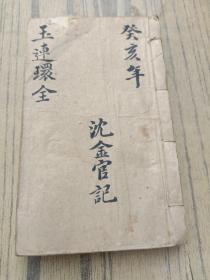 癸亥年
沈金官記
玉連環全